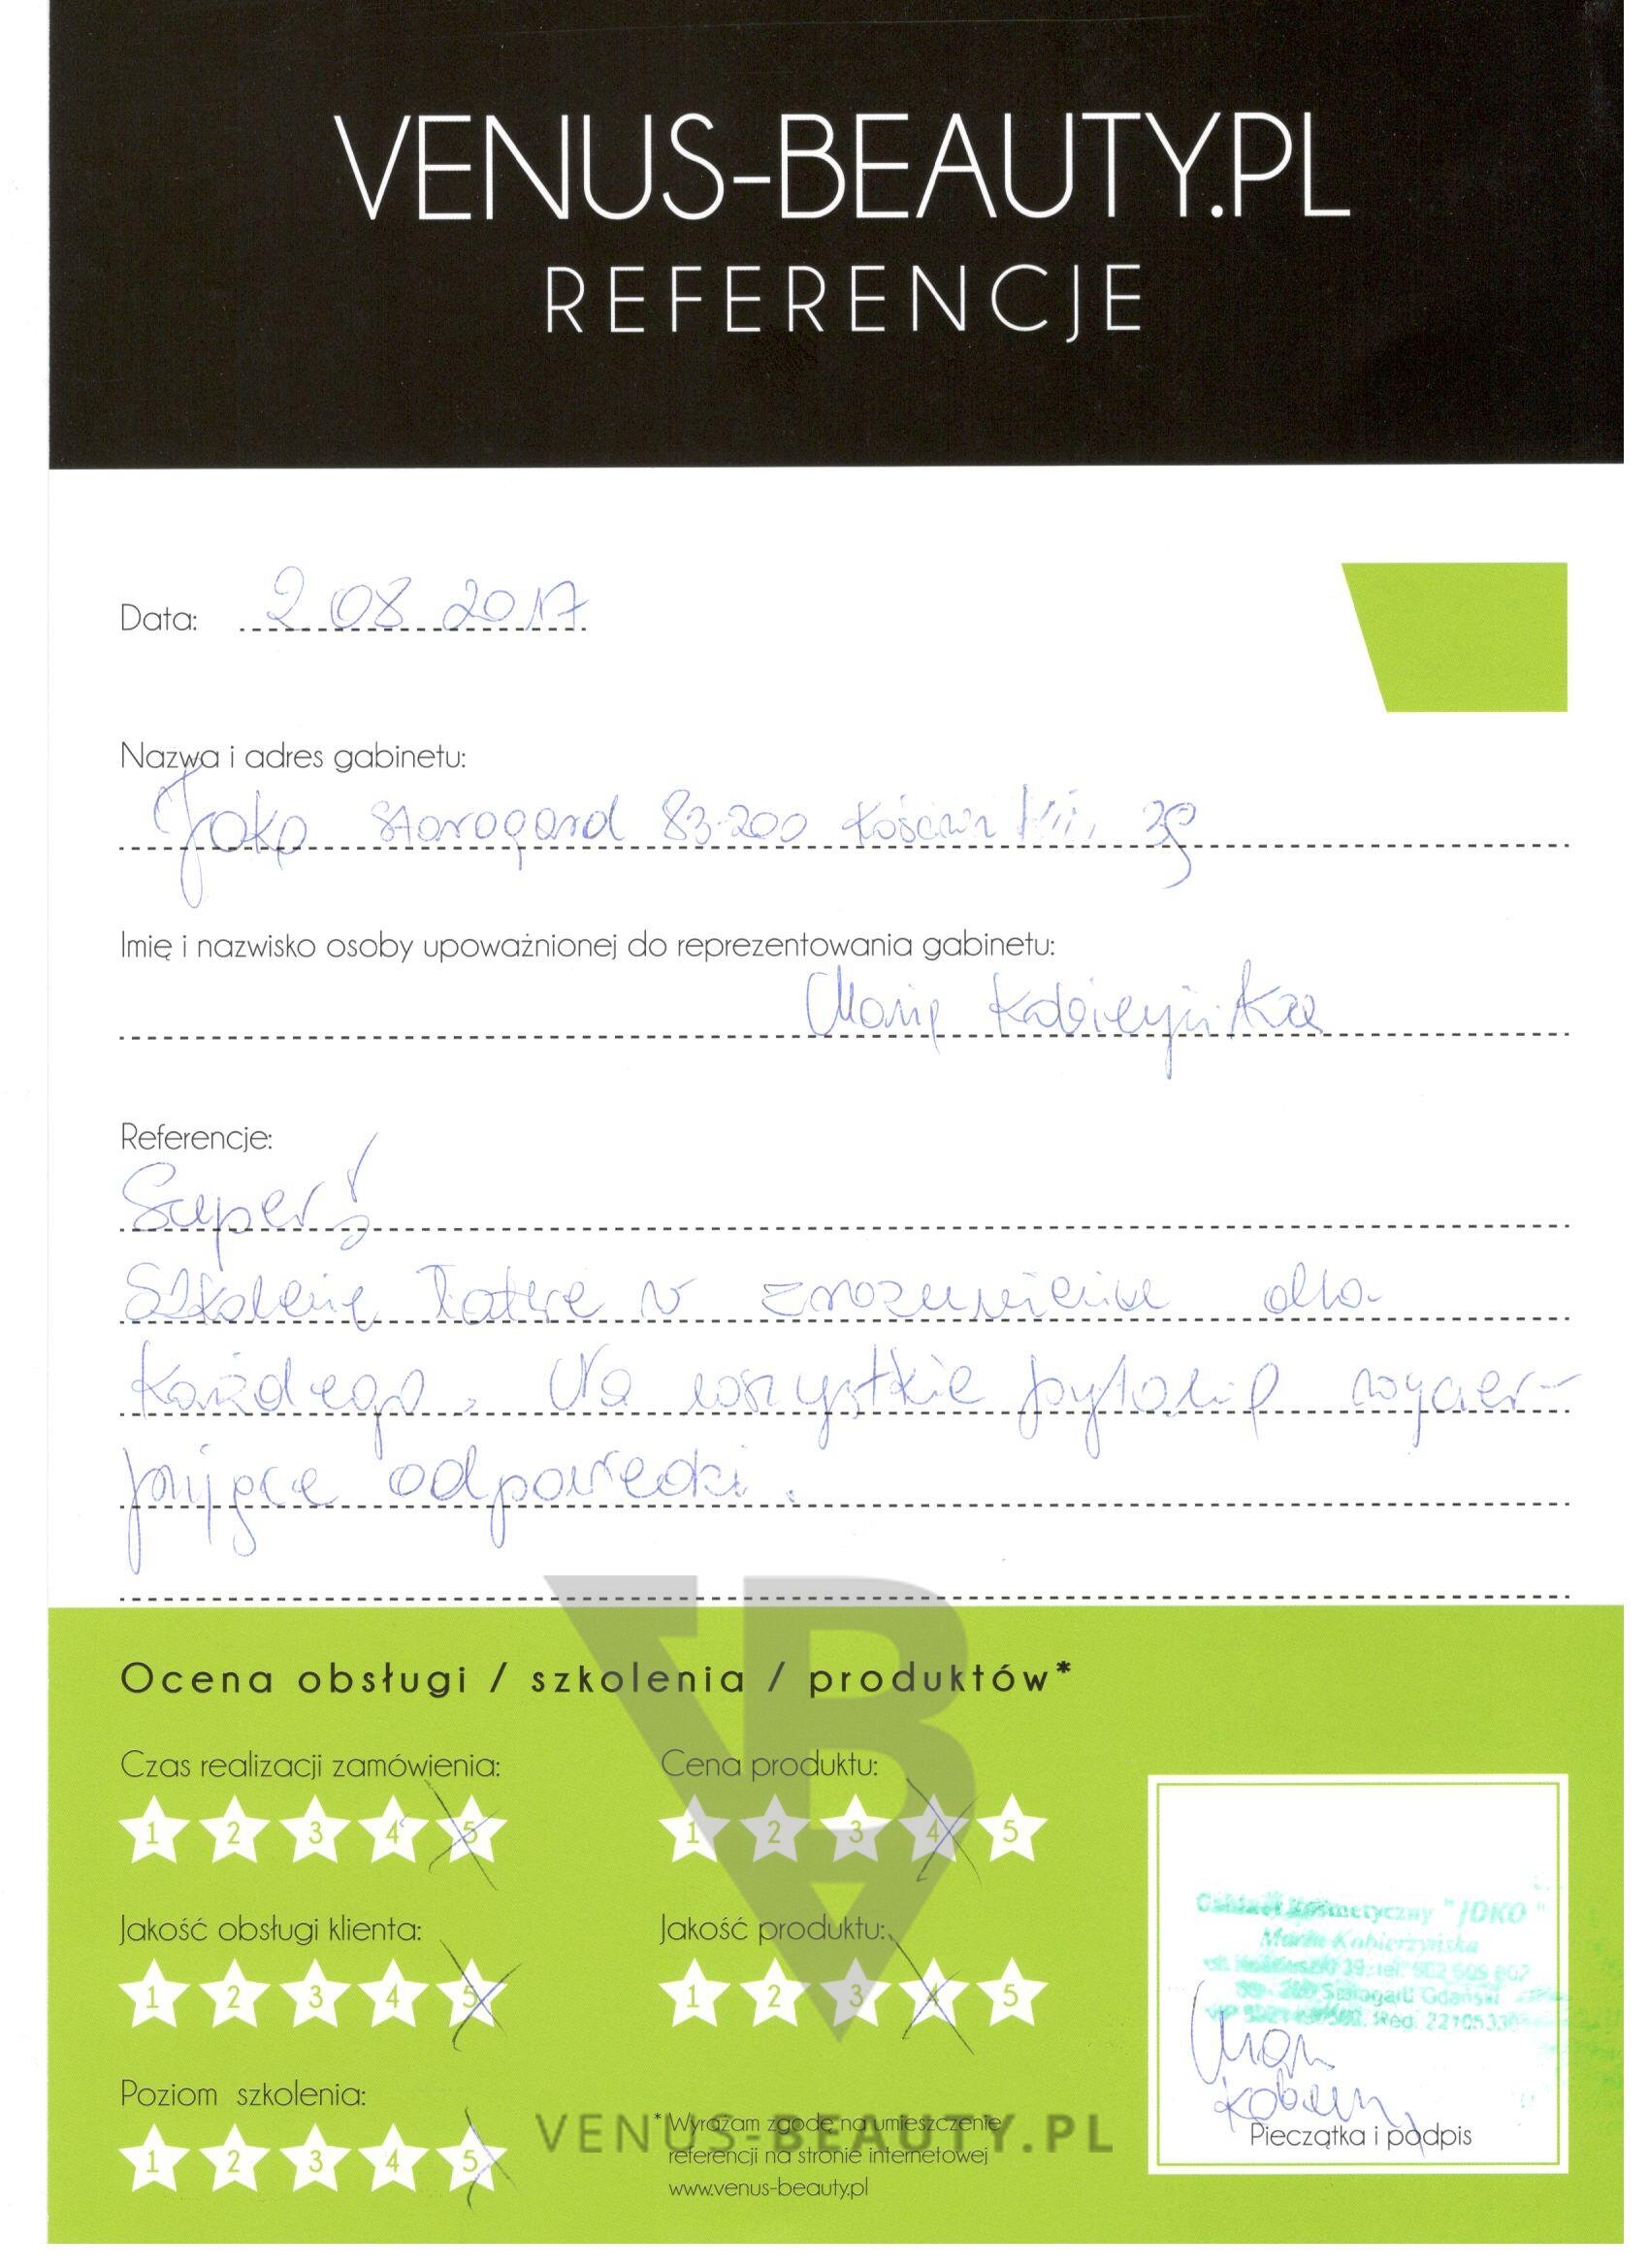 VENUS-BEAUTY.PL
REFERENCJE
Data: 2 08 2017
Nazwa i adres gabinetu:
Joko Starogard 83-200 39
Imię i nazwisko osoby upoważnionej do reprezentowania gabinetu:
Maria Kobierzyńska
Referencje:
Super!
Szkolenie łatwe w zrozumieniu dla
każdego. Na wszystkie pytania wyczer-
pujące odpowiedzi.
Ocena obsługi / szkolenia / produktów*
Czas realizacji zamówienia: Cena produktu:
1 2 3 4 5 1 2 3 4 5
Jakość obsługi klienta: Jakość produktu:
1 2 3 4 5 1 2 3 4 5
Gabinet Kosmetyczny "JOKO"
Maria Kobierzyńska
39, tel. 502 609 602
83-200 Starogard Gdański
Poziom szkolenia:
1 2 3 4 5
*Wyrażam zgodę na umieszczenie
referencji na stronie internetowej
www.venus-beauty.pl
VENUS-BEAUTY.PL
Pieczątka i podpis